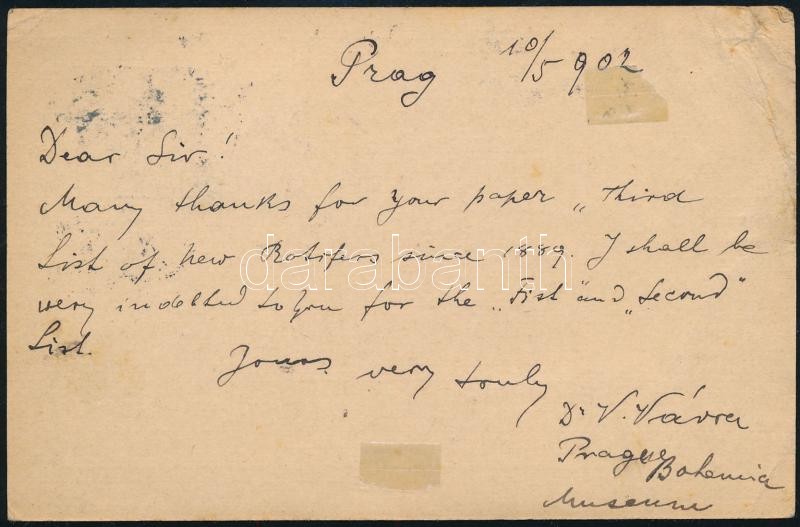 Prag 10/5 902
Dear Sir!
Many thanks for your paper „Third
List of New Rotifers since 1889. I shall be
very indebted to you for the „Fist" and „Second"
List.
Yours very truly
Dr V. Vávra
Prague
Bohemia
Museum
darabanth